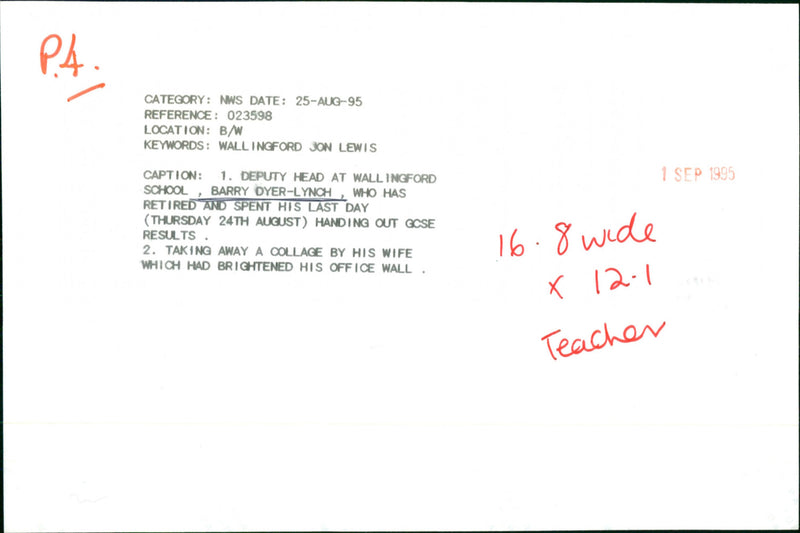 P.4.
CATEGORY: NWS DATE: 25-AUG-95
REFERENCE: 023598
LOCATION: B/W
KEYWORDS: WALLINGFORD JON LEWIS
CAPTION: 1. DEPUTY HEAD AT WALLINGFORD
SCHOOL , BARRY DYER-LYNCH , WHO HAS
RETIRED AND SPENT HIS LAST DAY
(THURSDAY 24TH AUGUST) HANDING OUT GCSE
RESULTS .
2. TAKING AWAY A COLLAGE BY HIS WIFE
WHICH HAD BRIGHTENED HIS OFFICE WALL .
1 SEP 1995
16.8 wide
x 12.1
Teacher